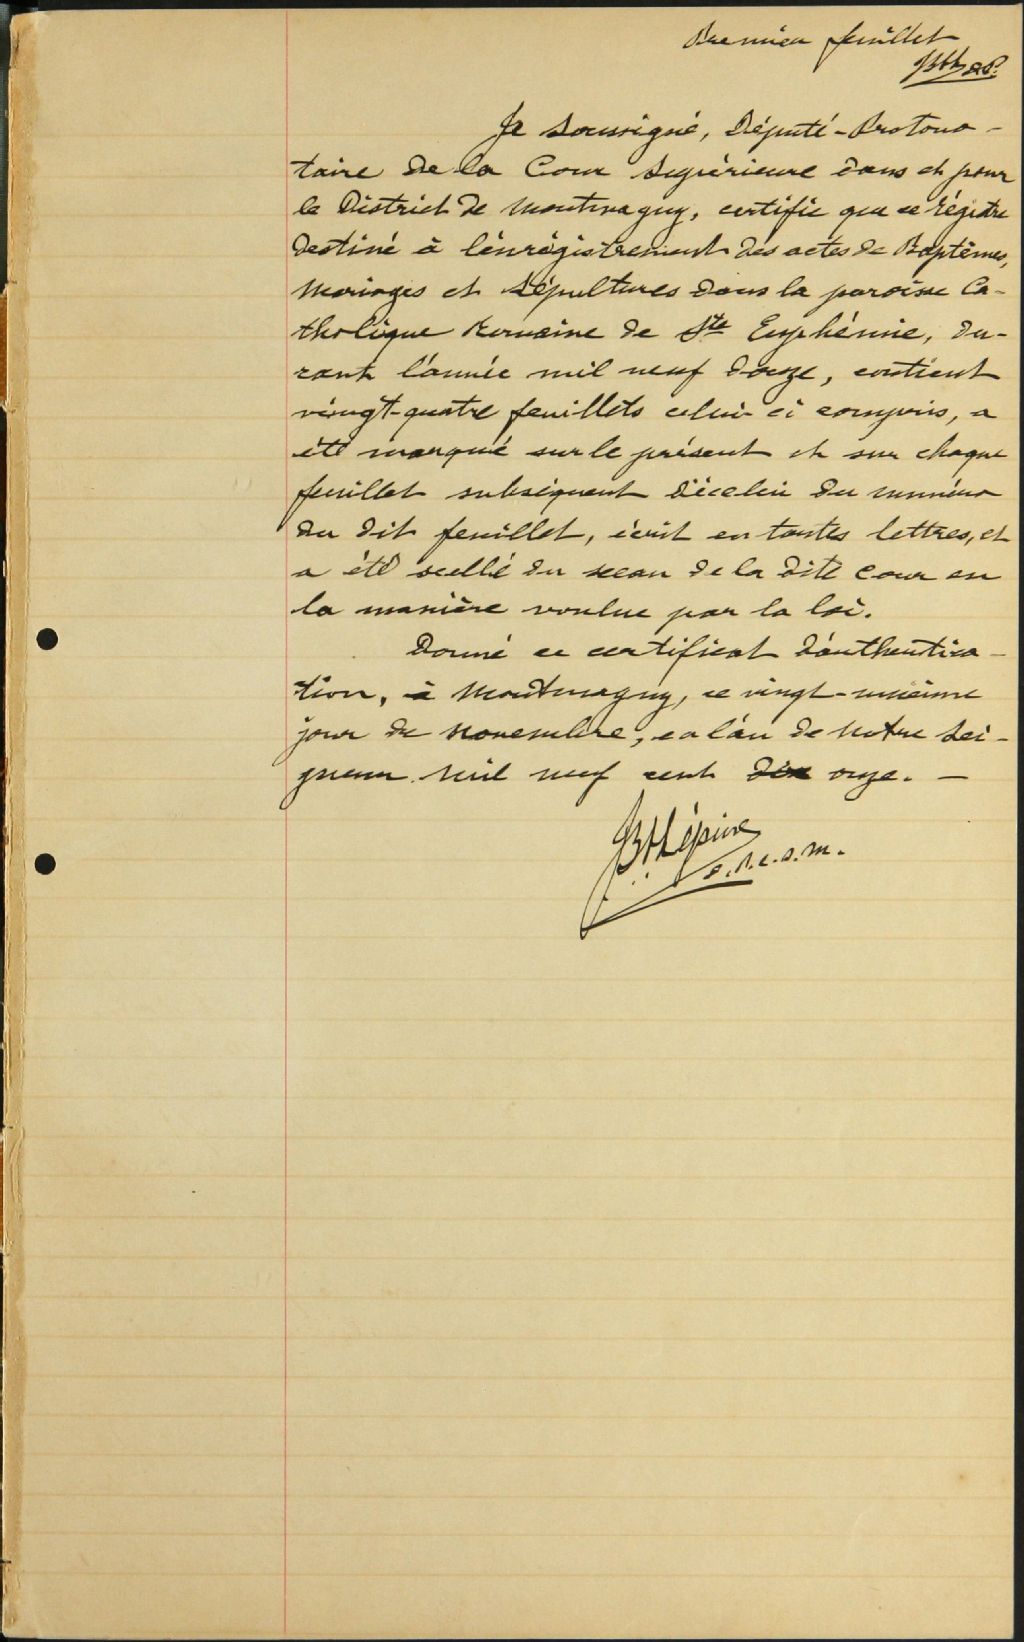 Premier feuillet
Je soussigné, Député-Protono-
taire de la Cour Supérieure dans et pour
le District de Montmagny, certifie que ce régistre
destiné à l'enrégistrement des actes de Baptêmes,
Mariages et Sépultures dans la paroisse Ca-
tholique Romaine de Ste Euphémie, du-
rant l'année mil neuf douze, contient
vingt-quatre feuillets celui-ci compris, a
été marqué sur le présent et sur chaque
feuillet subséquent d'icelui du numéro
du dit feuillet, écrit en toutes lettres, et
a été scellé du sceau de la dite cour en
la manière voulue par la loi.
Donné ce certificat d'authentica-
tion, à Montmagny, ce vingt-unième
jour de Novembre, en l'an de Notre Sei-
gneur mil neuf cent dix onze. —
Lépine